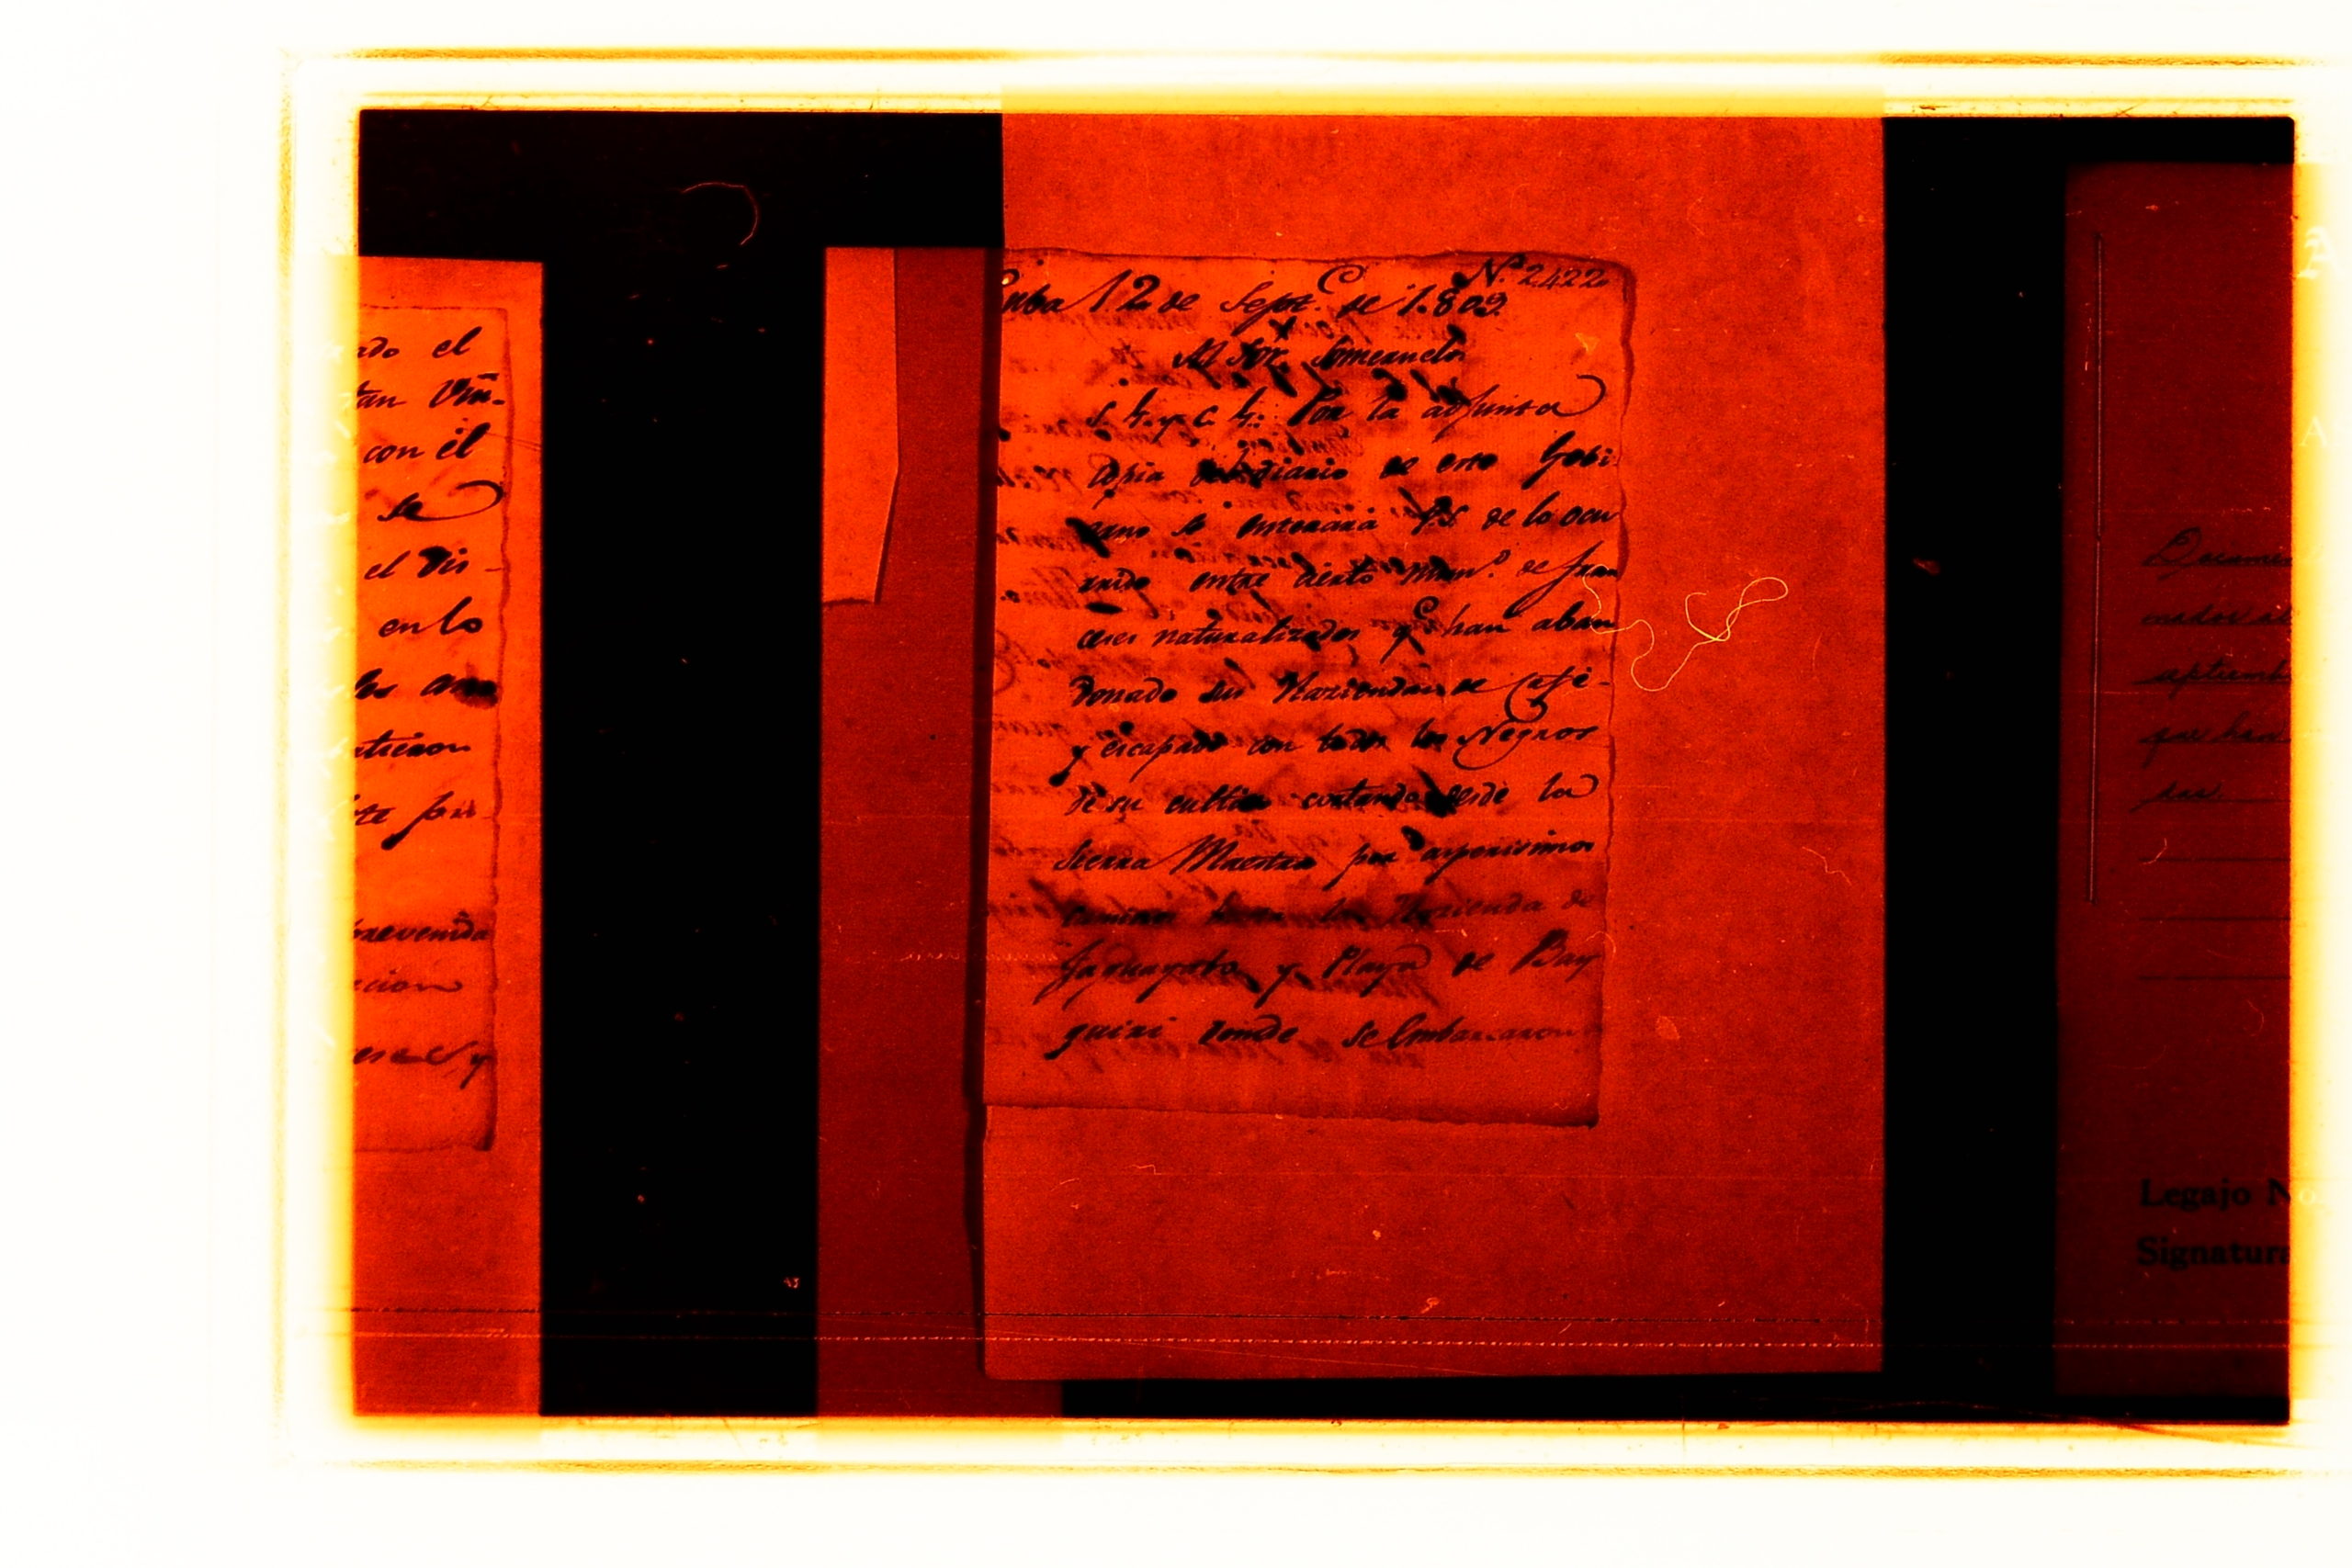 ado el
tan Vm̃-
con él
se
el Dis-
en lo
los am
ntraron
prevenida
acion
y
N.º 2422
Cuba 12 de Sept.e de 1.809.
Al Sor. Someruelos
S. Y. y C. G. Por la adjunta
Copia del diario de este Gobi-
erno se enterará V.S. de lo ocu
rrido entre cierto num.º de fran
ceses naturalizados q.e han aban
donado sus Haziendas de Café-
y escapado con todos los Negros
de su cultivo cortando desde la
Sierra Maestra por asperisimos
caminos hasta la Hazienda de
Jaruayeto y Playa de Bay
quiri donde se Embarcaron
Documen
nador al
septiemb
que han
das.
Legajo No.
Signatura